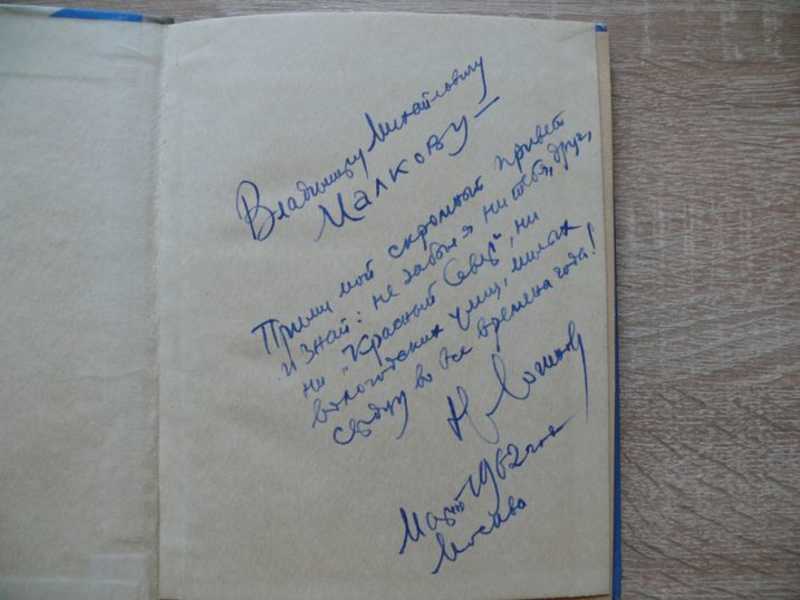 Владимиру Михайловичу
Малкову –
Прими мой скромный привет
и знай: не забыл я ни тебя, друг,
ни "Красный Север", ни
вологодских улиц, милых
сердцу во все времена года!
Март 1962 года
Москва